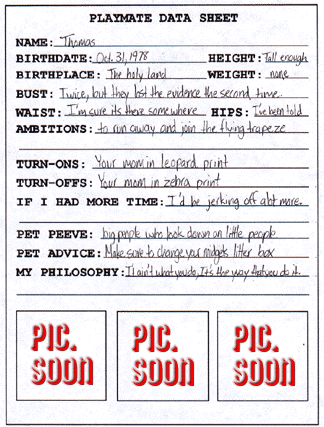 PLAYMATE DATA SHEET
NAME: Thomas
BIRTHDATE: Oct. 31, 1978 HEIGHT: Tall enough
BIRTHPLACE: The holy land WEIGHT: none
BUST: Twice, but they lost the evidence the second time.
WAIST: I'm sure its there somewhere HIPS: I've been told
AMBITIONS: to run away and join the flying trapeze
TURN-ONS: Your mom in leopard print
TURN-OFFS: Your mom in zebra print
IF I HAD MORE TIME: I'd be jerking off alot more.
PET PEEVE: big people who look down on little people
PET ADVICE: Make sure to change your midgets litter box
MY PHILOSOPHY: It ain't what you do, It's the way that you do it.
PIC. SOON PIC. SOON PIC. SOON